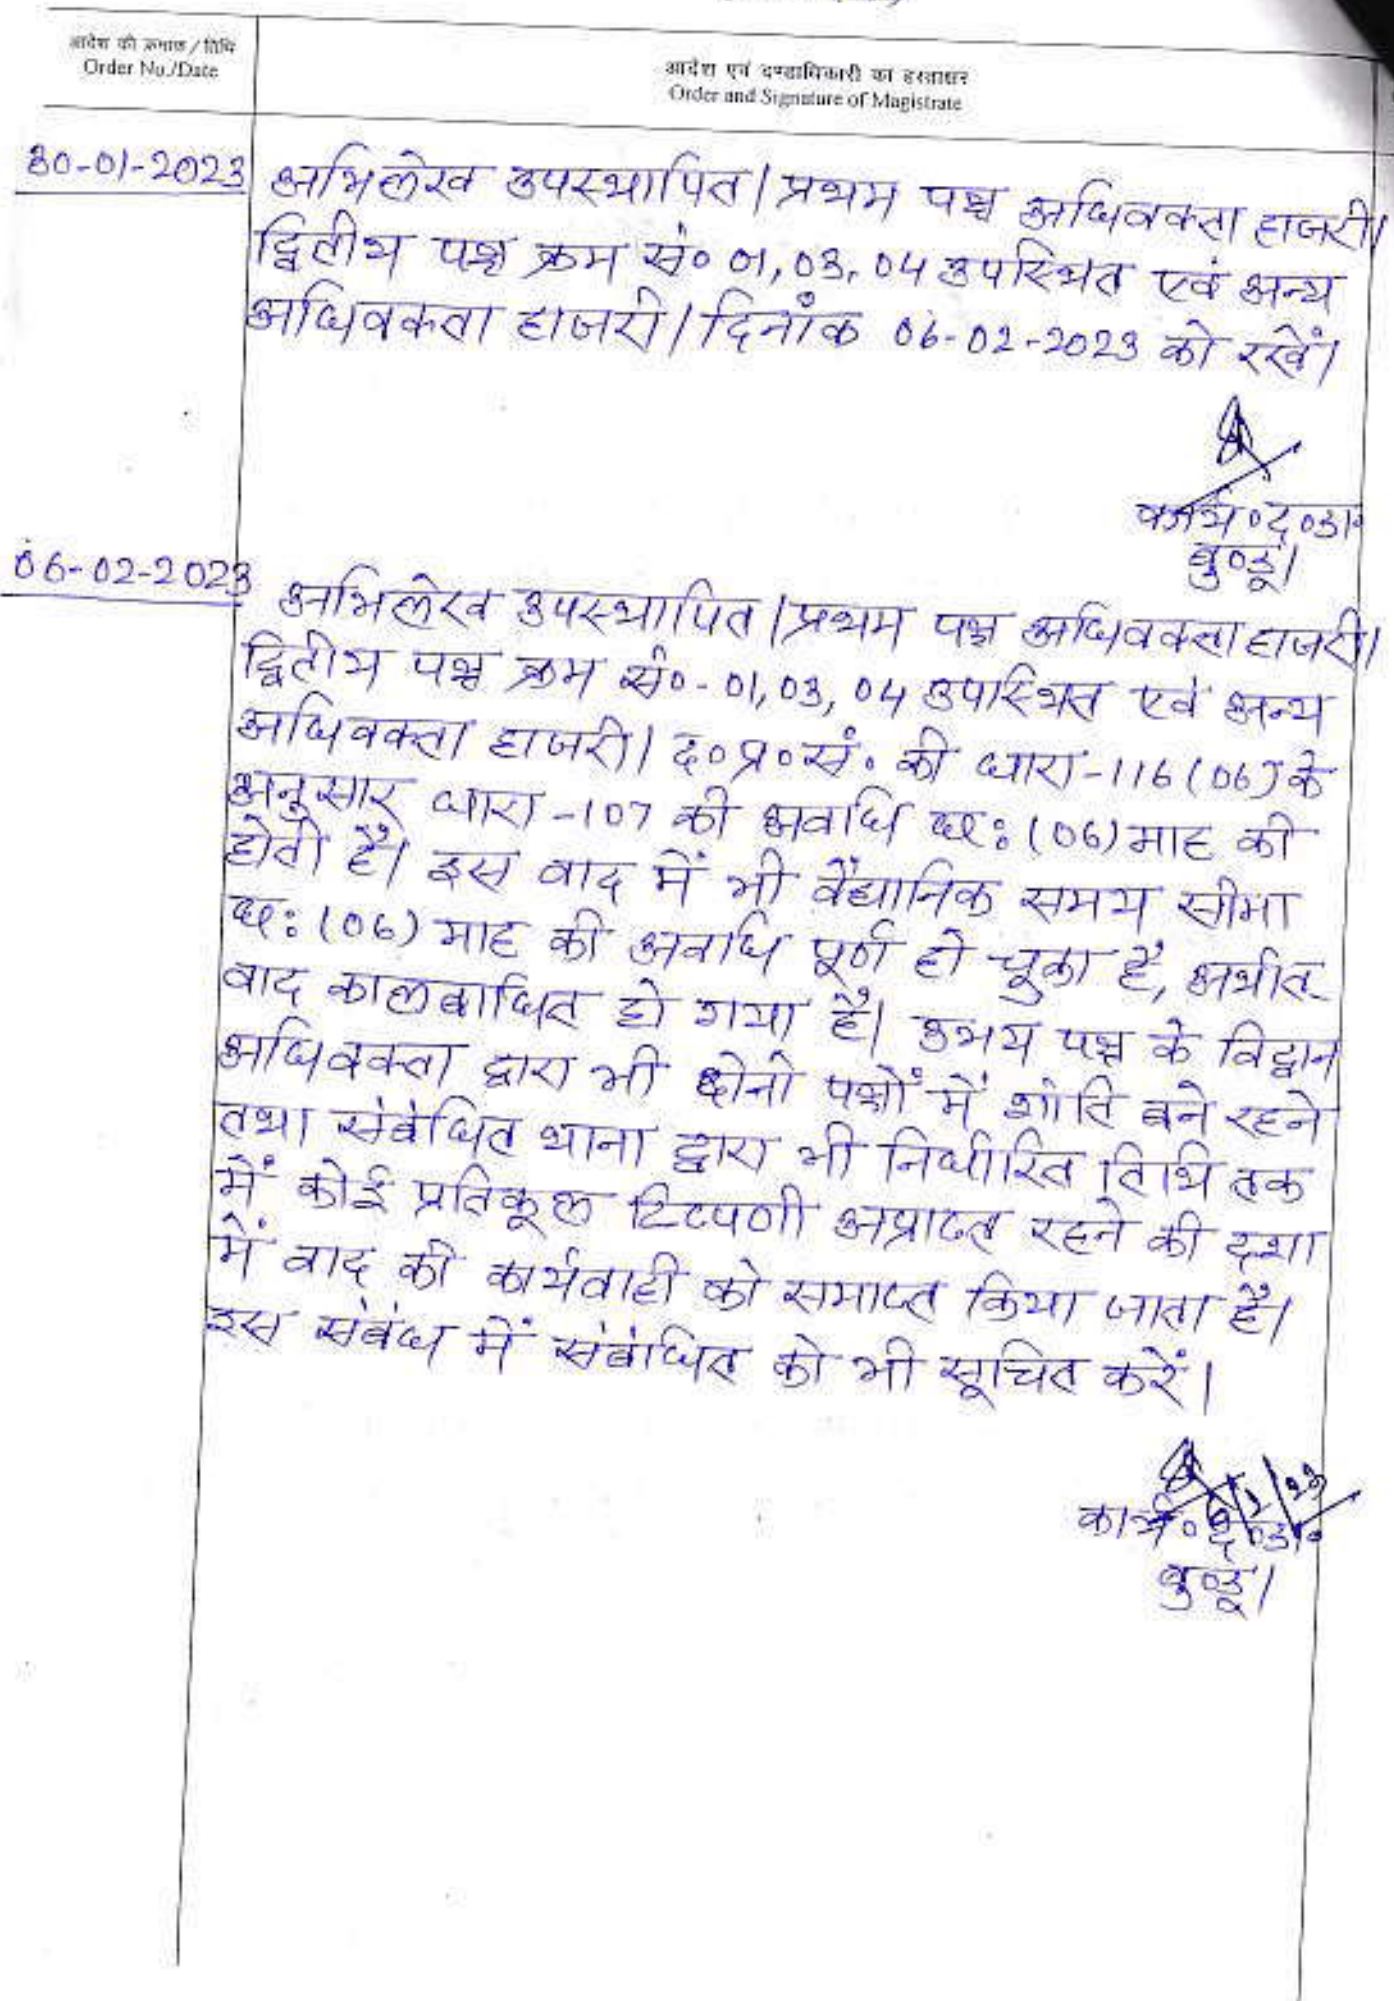 आदेश की क्रमांक / तिथि
Order No./Date
आदेश एवं दण्डाधिकारी का हस्ताक्षर
Order and Signature of Magistrate
30-01-2023
अभिलेख उपस्थापित। प्रथम पक्ष अधिवक्ता हाजरी।
द्वितीय पक्ष क्रम सं० 01, 03, 04 उपस्थित एवं अन्य
अधिवक्ता हाजरी। दिनांक 06-02-2023 को रखें।
कार्य०द०अ०
बुण्डू।
06-02-2023
अभिलेख उपस्थापित। प्रथम पक्ष अधिवक्ता हाजरी।
द्वितीय पक्ष क्रम सं०-01, 03, 04 उपस्थित एवं अन्य
अधिवक्ता हाजरी। द०प्र०सं० की धारा-116(06) के
अनुसार धारा-107 की अवधि छः (06) माह की
होती है। इस वाद में भी वैधानिक समय सीमा
छः (06) माह की अवधि पूर्ण हो चुका है, अर्थात्
वाद कालबाधित हो गया है। उभय पक्ष के विद्वान
अधिवक्ता द्वारा भी दोनो पक्षों में शांति बने रहने
तथा संबंधित थाना द्वारा भी निर्धारित तिथि तक
में कोई प्रतिकूल टिप्पणी अप्राप्त रहने की दशा
में वाद की कार्यवाही को समाप्त किया जाता है।
इस संबंध में संबंधित को भी सूचित करें।
कार्य०द०अ०
बुण्डू।